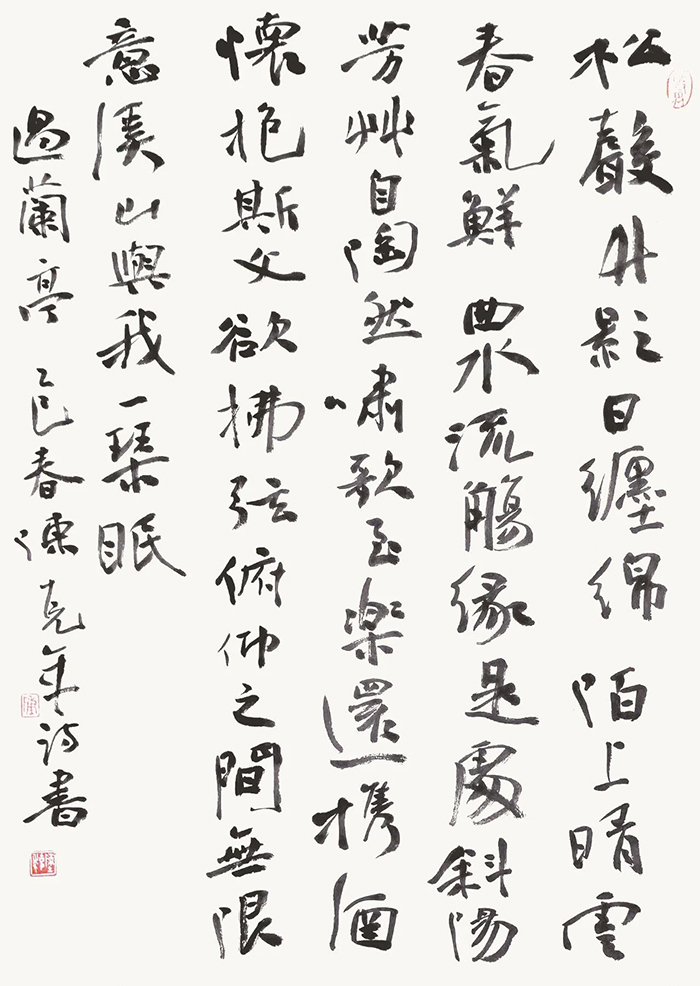 松聲竹影日纏綿 陌上晴雲
春氣鮮 曲水流觴緣是處斜陽
芳艸自陶然嘯歌至樂還攜酒
懷抱斯文欲拂弦俯仰之間無限
意溪山與我一琴眠
過蘭亭 乙巳春陳克年詩書